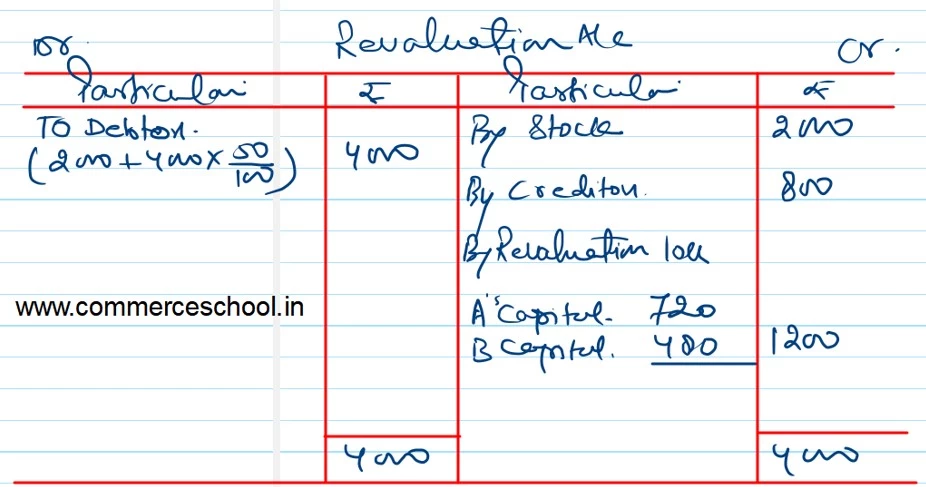 Dr. Revaluation A/c Cr.
Particulars ₹ Particulars ₹
To Debtors. 4000 By Stock 2000
(2000 + 4000 × 50/100)
By Creditors. 800
By Revaluation loss
www.commerceschool.in
A's Capital. 720
B Capital. 480 1200
4000 4000